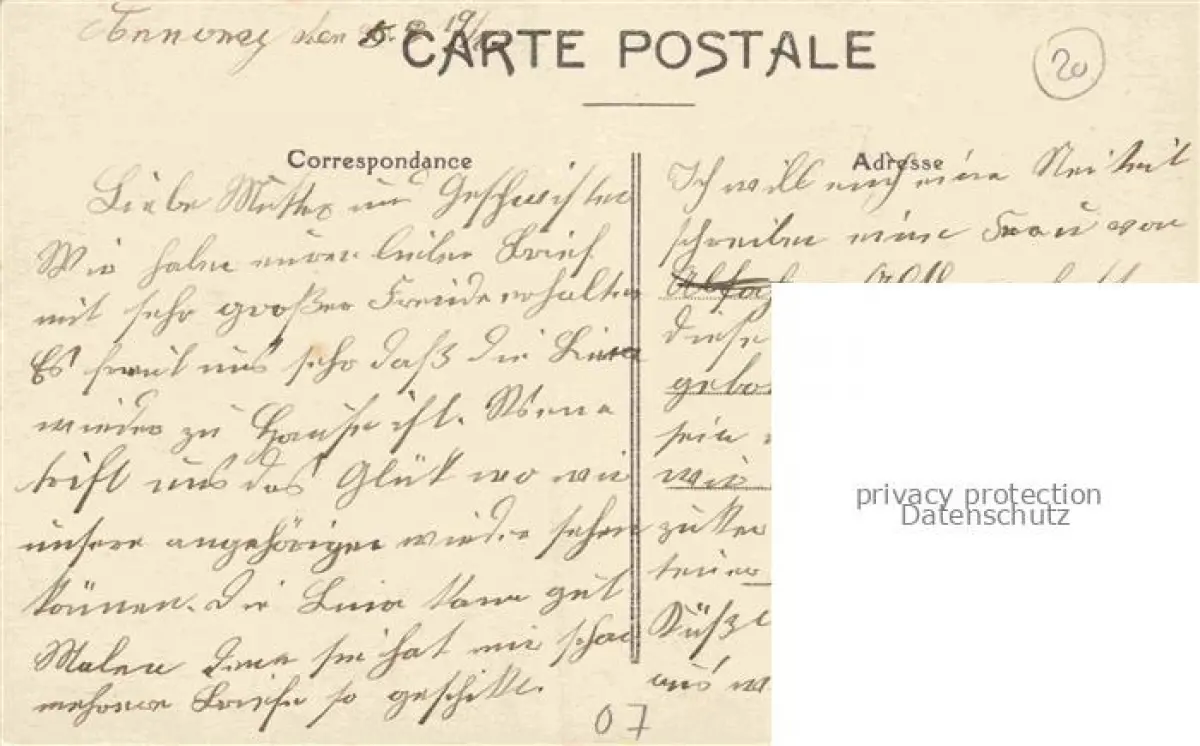 Annonay den 15. 2. 19
CARTE POSTALE
20
Correspondance
Liebe Mutter und Geschwister
Wir haben euren lieben Brief
mit sehr großer Freude erhalten
Es freut uns sehr daß die Lina
wieder zu Hause ist. Wena
trift uns das Glük wo wir
unsere angehörigen wieder sehen
können. Die Lina kann gut
Malen denn sie hat mir schon
mehrere Briefe so geschikt.
07
Adresse
Ich will euch eine Neikeit
schreiben eine Frau von
diese
gebor
sein
wir
zuker
teuer
Küße
uns
privacy protection
Datenschutz